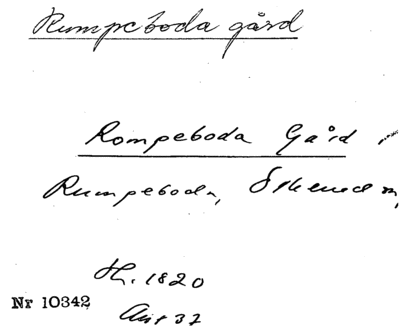 Rumpeboda gård
Rompeboda Gård
Rumpeboda,
H. 1820
Nr 10342